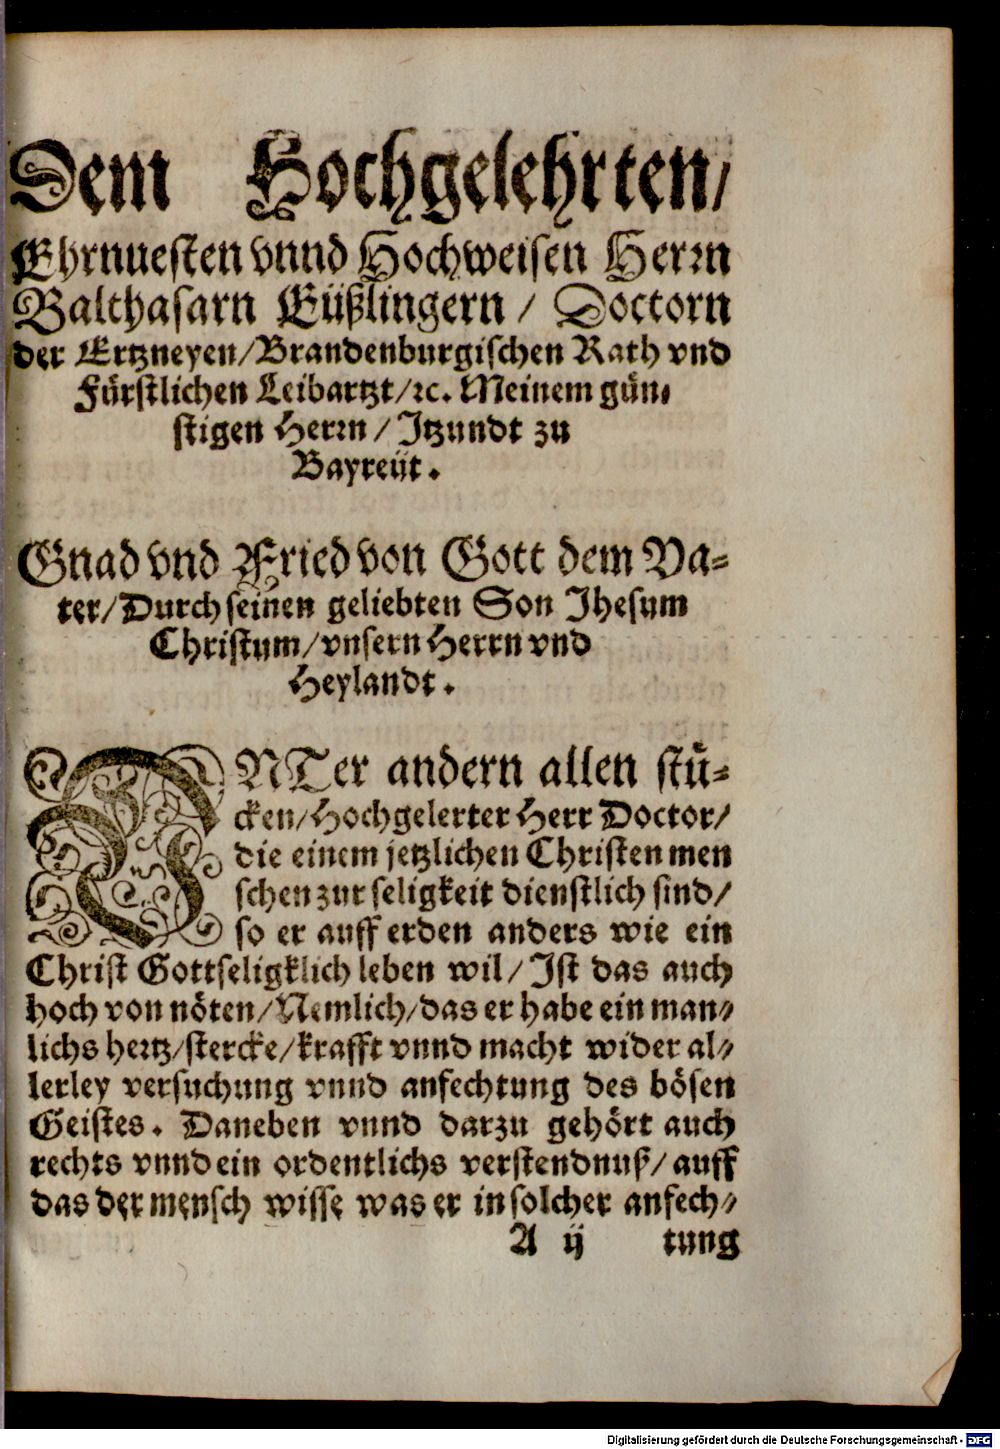 Dem Hochgelehrten/
Ehrnuesten vnnd Hochweisen Herrn
Balthasarn Eüßlingern / Doctorn
der Ertzneyen/Brandenburgischen Rath vnd
Fürstlichen Leibartzt/ꝛc. Meinem gün⸗
stigen Herrn / Jtzundt zu
Bayreüt.
Gnad vnd Fried von Gott dem Va⸗
ter/Durch seinen geliebten Son Jhesum
Christum/vnsern Herrn vnd
Heylandt.
VNTer andern allen stü⸗
cken/Hochgelerter Herr Doctor/
die einem jetzlichen Christen men
schen zur seligkeit dienstlich sind/
so er auff erden anders wie ein
Christ Gottseligklich leben wil/Jst das auch
hoch von nöten/Nemlich/das er habe ein man⸗
lichs hertz/stercke/krafft vnnd macht wider al⸗
lerley versuchung vnnd anfechtung des bösen
Geistes. Daneben vnnd darzu gehört auch
rechts vnnd ein ordentlichs verstendnuß/auff
das der mensch wisse was er in solcher anfech⸗
A ij tung
Digitalisierung gefördert durch die Deutsche Forschungsgemeinschaft - DFG